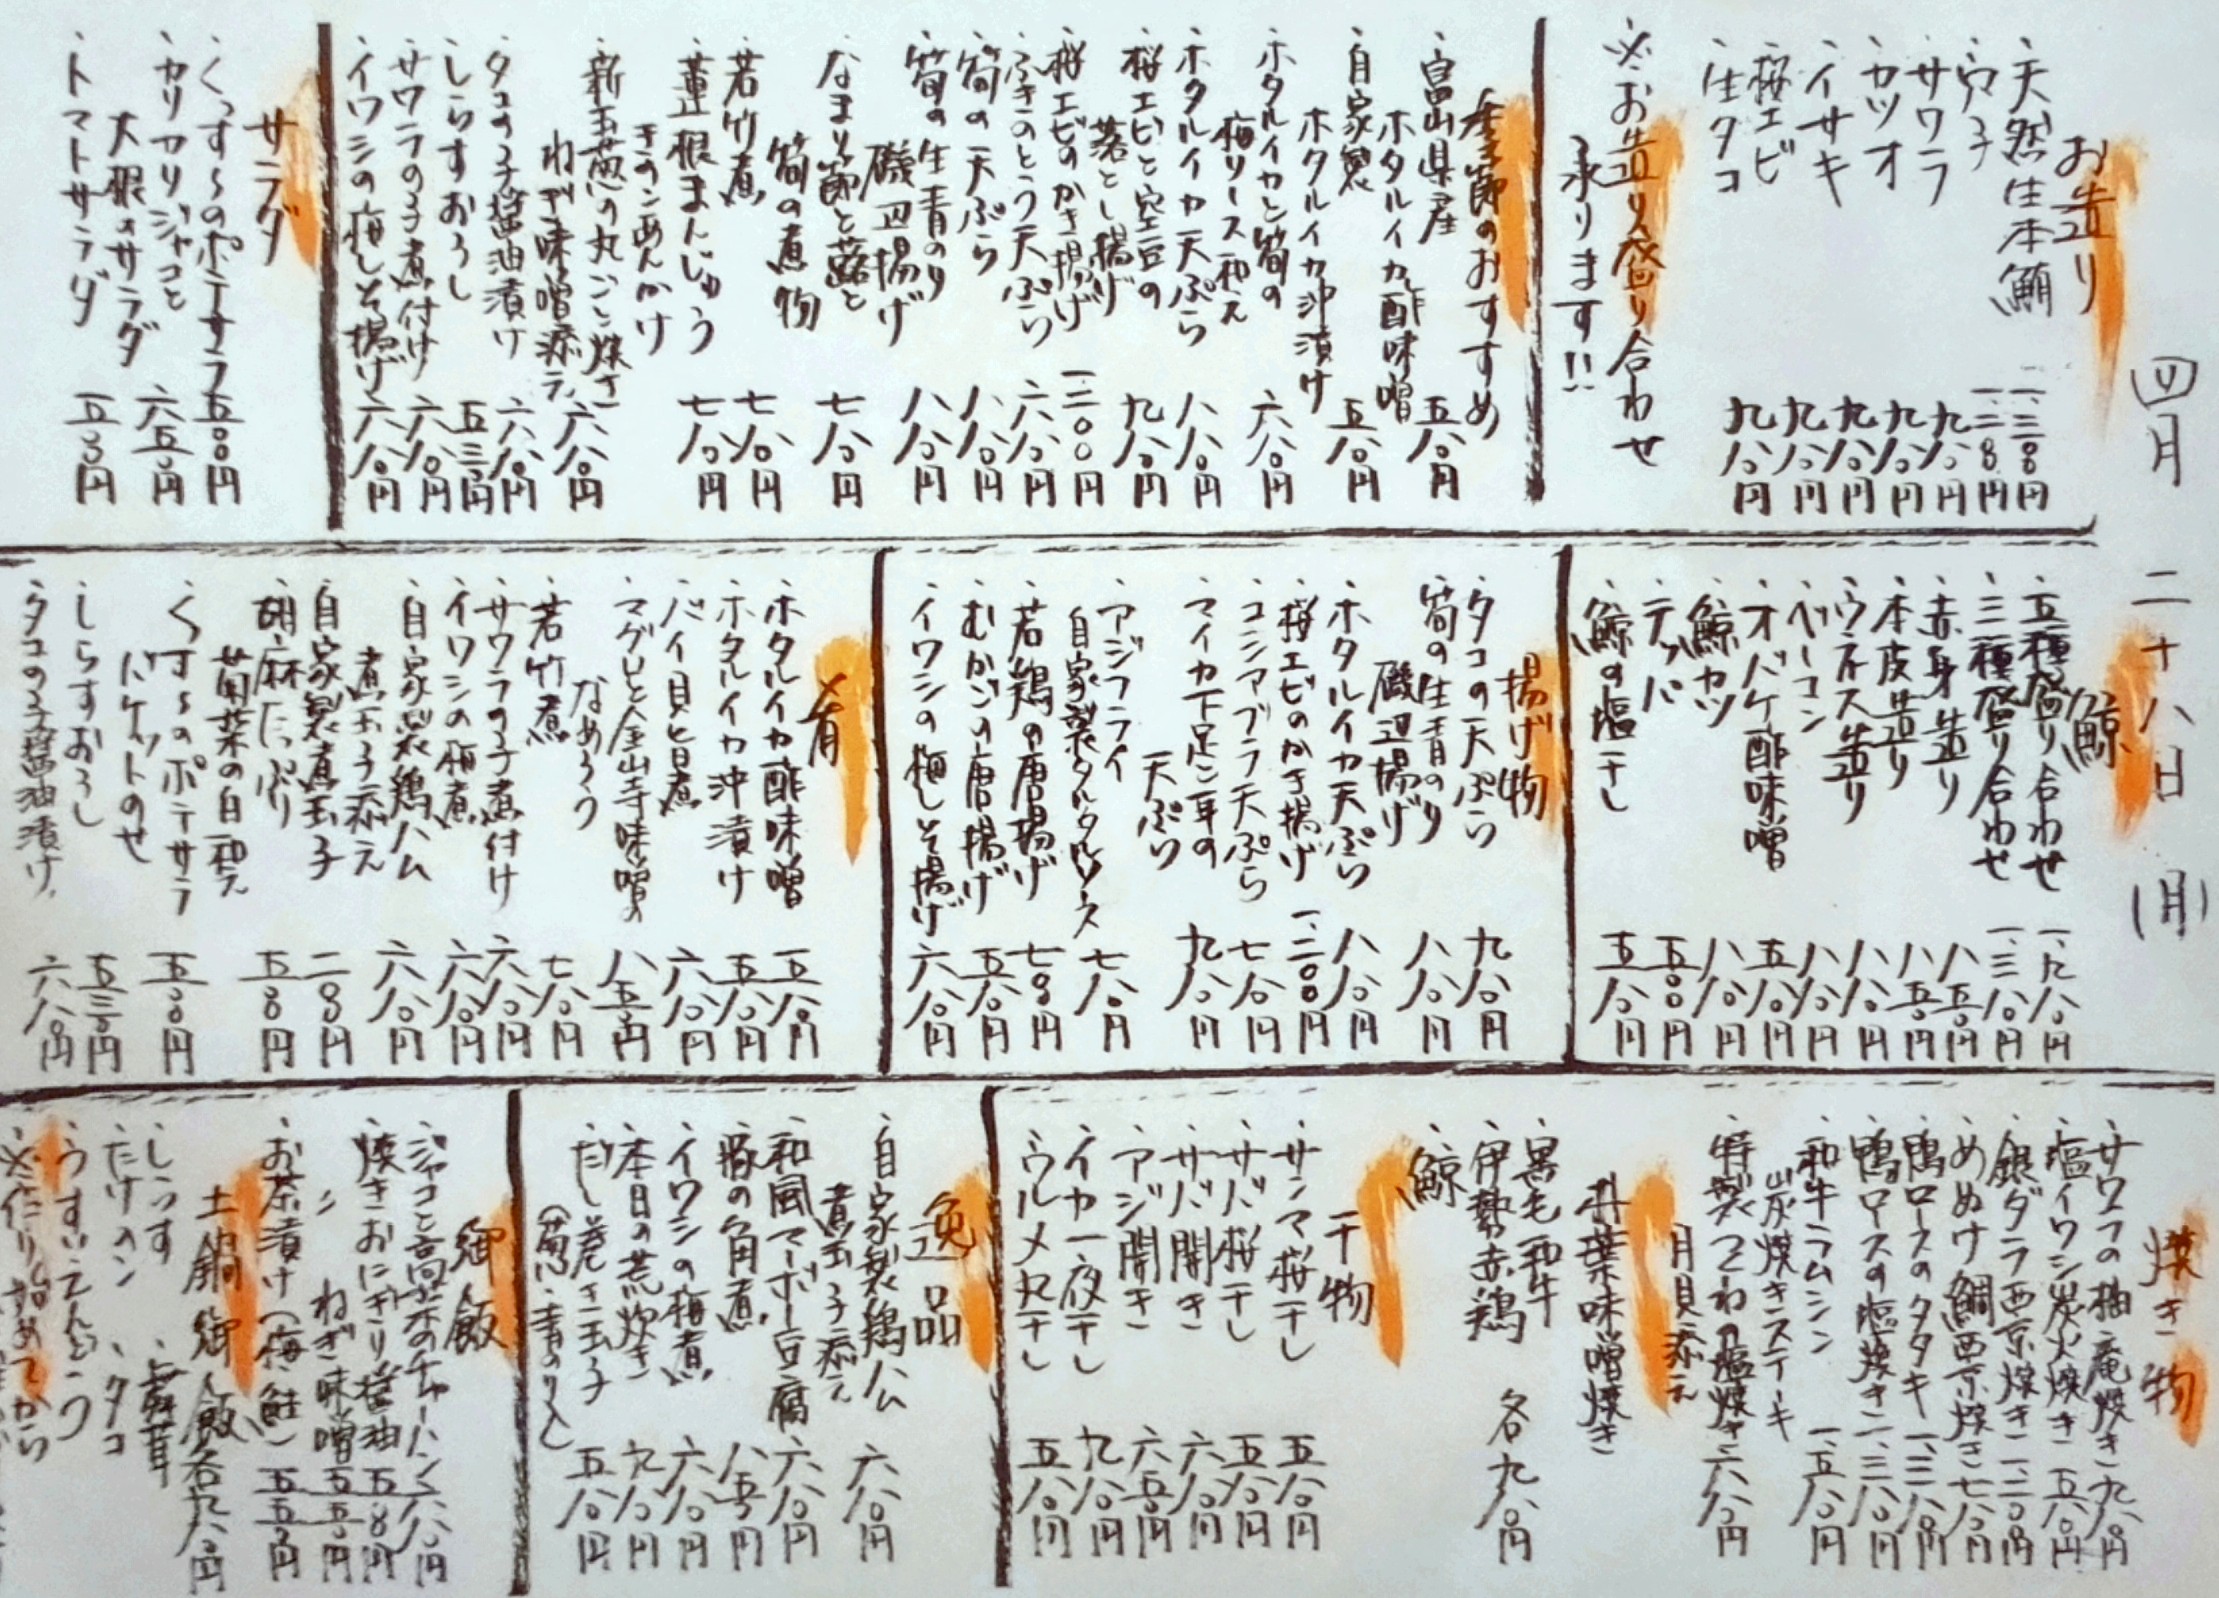 四月二十八日(月)
お造り
・天然生本鮪 一、三八〇円
・ウニ 一、三八〇円
・サワラ 九八〇円
・カツオ 九八〇円
・イサキ 九八〇円
・桜エビ 九八〇円
・生タコ 九八〇円
※お造り盛り合わせ
承ります!!
季節のおすすめ
・富山県産
ホタルイカ酢味噌 五八〇円
・自家製
ホタルイカ沖漬け 五八〇円
・ホタルイカと筍の
梅ソース和え 六八〇円
・ホタルイカ天ぷら 八八〇円
・桜エビと空豆の
落とし揚げ 九八〇円
・桜エビのかき揚げ 一二〇〇円
・ふきのとう天ぷら 六八〇円
・筍の天ぷら 八八〇円
・筍の生青のり
磯辺揚げ 八八〇円
・なまり節と蕗と
筍の煮物 七八〇円
・若竹煮 七八〇円
・蓮根まんじゅう
きのこあんかけ 七八〇円
・新玉葱の丸ごと焼き
ねぎ味噌添え 六八〇円
・タコの子醤油漬け 六八〇円
・しらすおろし 五三〇円
・サワラの子煮付け 六八〇円
・イワシの梅しそ揚げ 六八〇円
サラダ
・くっす〜のポテサラ 五八〇円
・カリカリジャコと
大根のサラダ 六五〇円
・トマトサラダ 五八〇円
鯨
・五種盛り合わせ 一、九八〇円
・三種盛り合わせ 一、三八〇円
・赤身造り 八五〇円
・本皮造り 八五〇円
・ウネス造り 八八〇円
・ベーコン 八八〇円
・オバケ酢味噌 五八〇円
・鯨カツ 八八〇円
・テッパ 五〇〇円
・鯨の塩干し 五八〇円
揚げ物
・タコの天ぷら 九八〇円
・筍の生青のり
磯辺揚げ 八八〇円
・ホタルイカ天ぷら 八八〇円
・桜エビのかき揚げ 一、二〇〇円
・コシアブラ天ぷら 七八〇円
・マイカ下足と耳の
天ぷら 九八〇円
・アジフライ
自家製タルタルソース 七八〇円
・若鶏の唐揚げ 七〇〇円
・むかごの唐揚げ 五八〇円
・イワシの梅しそ揚げ 六八〇円
肴
・ホタルイカ酢味噌 五八〇円
・ホタルイカ沖漬け 五八〇円
・バイ貝旨煮 六八〇円
・マグロと金山寺味噌の
なめろう 八五〇円
・若竹煮 七八〇円
・サワラの子煮付け 六八〇円
・イワシの梅煮 六八〇円
・自家製鶏ハム
煮玉子添え 六八〇円
・自家製煮玉子 二八〇円
・胡麻たっぷり
菊菜の白和え 五八〇円
・くす〜のポテサラ
バケットのせ 五八〇円
・しらすおろし 五三〇円
・タコの子醤油漬け 六八〇円
焼き物
・サワラの柚庵焼き 九八〇円
・塩イワシ炭火焼き 五八〇円
・銀ダラ西京焼き 一、二八〇円
・めぬけ鯛西京焼き 七八〇円
・鴨ロースのタタキ 一、三八〇円
・鴨ロースの塩焼き 一、三八〇円
・和牛ラムシン
炭焼きステーキ 一、五八〇円
・特製つくねの塩焼き
月見添え 六八〇円
朴葉味噌焼き
・黒毛和牛
・伊勢赤鶏 各九八〇円
・鯨
干物
・サンマ桜干し 五八〇円
・サバ桜干し 五八〇円
・サバ開き 六八〇円
・アジ開き 六五〇円
・イカ一夜干し 九八〇円
・ウルメ丸干し 五八〇円
逸品
・自家製鶏ハム
煮玉子添え 六八〇円
・和風マーボー豆腐 六八〇円
・豚の角煮 八五〇円
・イワシの梅煮 六八〇円
・本日の荒炊き 九八〇円
・だし巻き玉子
(葱・青のり入) 五八〇円
御飯
・ジャコと高菜のチャーハン 八八〇円
・焼きおにぎり醤油 五〇〇円
〃 ねぎ味噌 五五〇円
・お茶漬け(梅・鮭) 五五〇円
土鍋御飯 各九八〇円
・しらす ・舞茸
・たけのこ ・タコ
・うすいえんどう
※作り始めてから